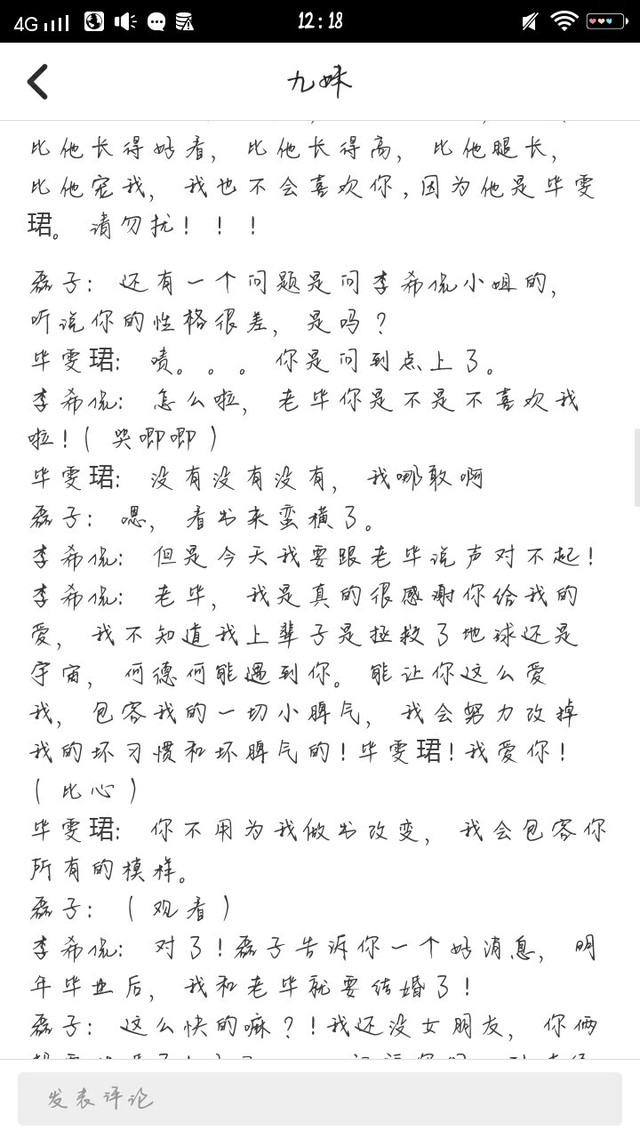 4G
12:18
九妹
比他长得好看，比他长得高，比他腿长，
比他宠我，我也不会喜欢你,因为他是毕雯
珺。请勿扰！！！
磊子：还有一个问题是问李希侃小姐的，
听说你的性格很差，是吗？
毕雯珺：啧。。。你是问到点上了。
李希侃：怎么啦，老毕你是不是不喜欢我
啦！（哭唧唧）
毕雯珺：没有没有没有，我哪敢啊
磊子：嗯，看出来蛮横了。
李希侃：但是今天我要跟老毕说声对不起！
李希侃：老毕，我是真的很感谢你给我的
爱，我不知道我上辈子是拯救了地球还是
宇宙，何德何能遇到你。能让你这么爱
我，包容我的一切小脾气，我会努力改掉
我的坏习惯和坏脾气的！毕雯珺！我爱你！
（比心）
毕雯珺：你不用为我做出改变，我会包容你
所有的模样。
磊子：（观看）
李希侃：对了！磊子告诉你一个好消息，明
年毕业后，我和老毕就要结婚了！
磊子：这么快的嘛？！我还没女朋友，你俩
发表评论